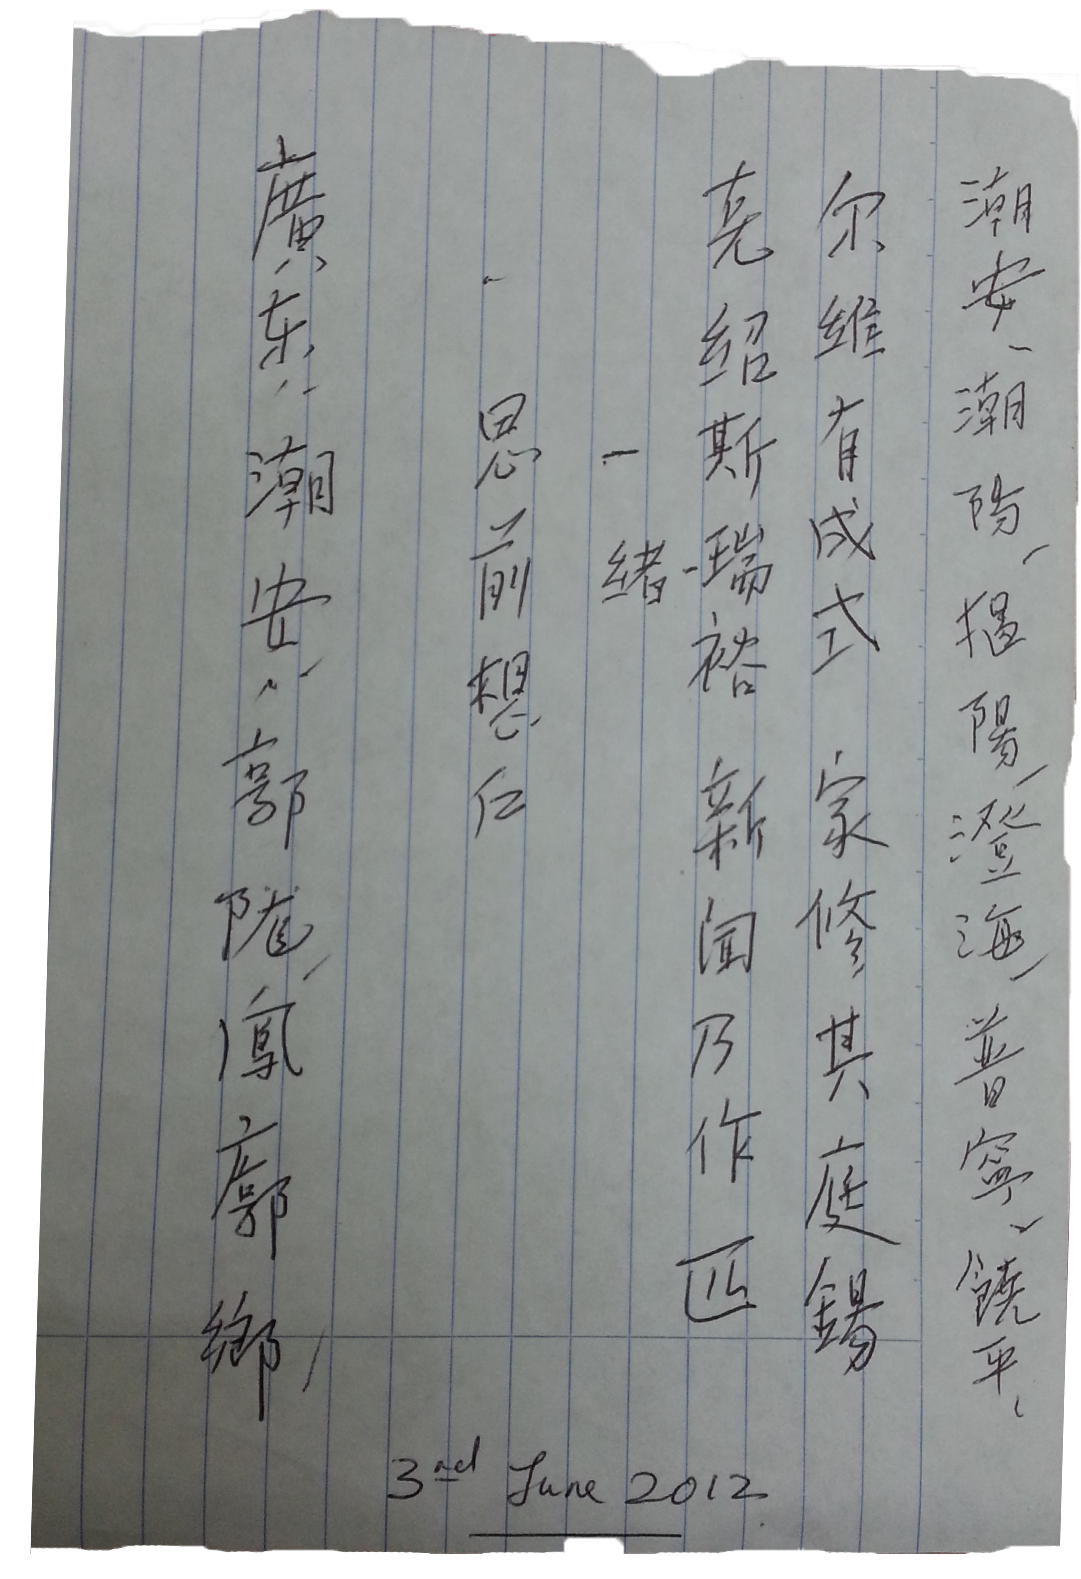 潮安、潮陽、揭陽、澄海、普寧、饒平、
尔維有成式 家修其庭錫
亮紹斯瑞裕 新聞乃作匹
一緒
思前想后
廣东、潮安、郭陇、鳳廓鄉,
3nd June 2012